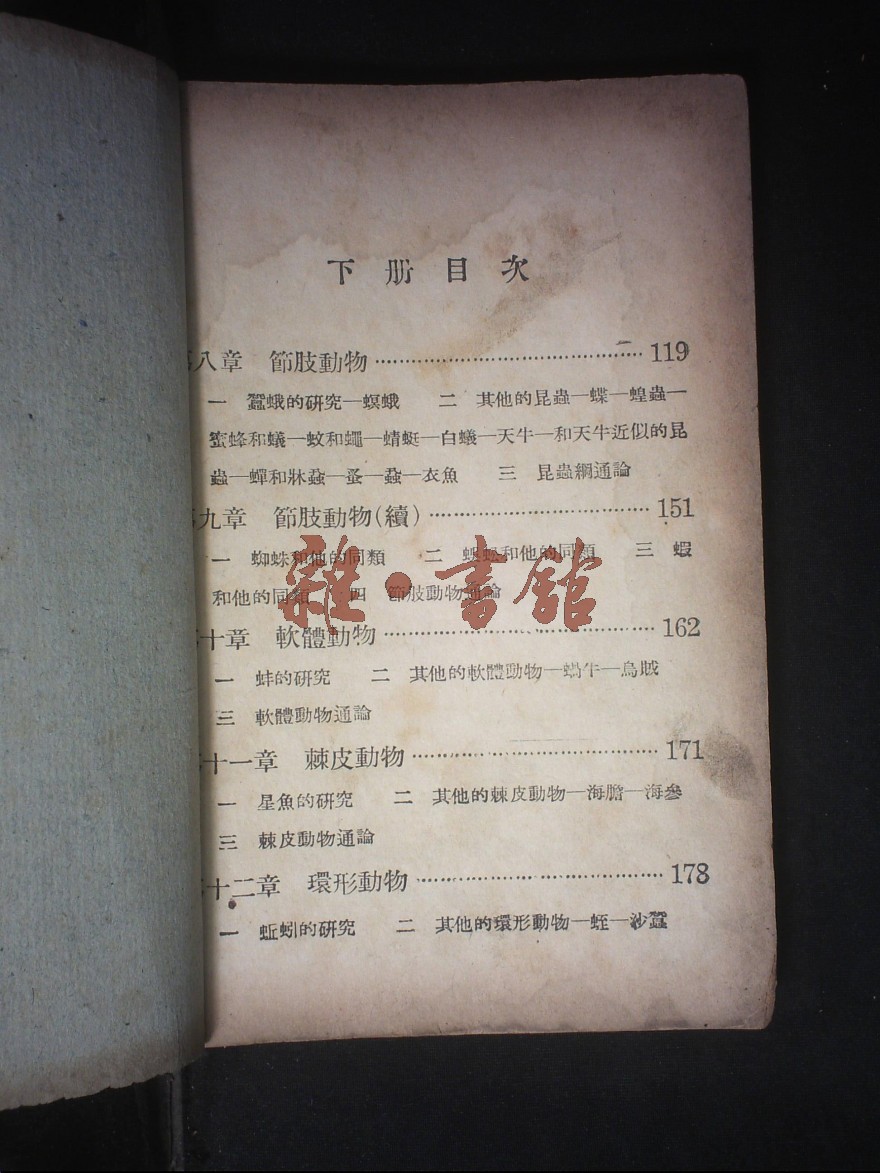 下册目次
第八章 節肢動物 119
一 蠶蛾的研究—螟蛾 二 其他的昆蟲—蝶—蝗蟲—
蜜蜂和蟻—蚊和蠅—蜻蜓—白蟻—天牛—和天牛近似的昆
蟲—蟬和牀蝨—蚤—蝨—衣魚 三 昆蟲綱通論
第九章 節肢動物(續) 151
一 蜘蛛和他的同類 二 蜈蚣和他的同類 三 蝦
和他的同類 四 節肢動物通論
第十章 軟體動物 162
一 蚌的研究 二 其他的軟體動物—蝸牛—烏賊
三 軟體動物通論
第十一章 棘皮動物 171
一 星魚的研究 二 其他的棘皮動物—海膽—海參
三 棘皮動物通論
第十二章 環形動物 178
一 蚯蚓的研究 二 其他的環形動物—蛭—沙蠶
雜·書館